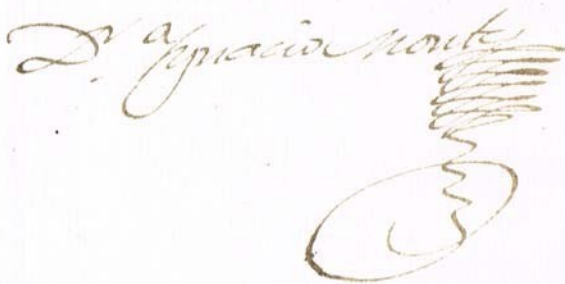 Dr. Ignacio Montes